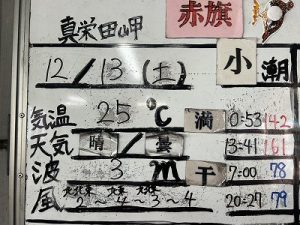 真栄田岬 赤旗
12/13(土) 小潮
気温 25℃ 満 0:53 142
天気 晴/曇 13:41 161
波 3m 干 7:00 78
風 大北東 大東 大北東 20:27 79
2～4～3～4